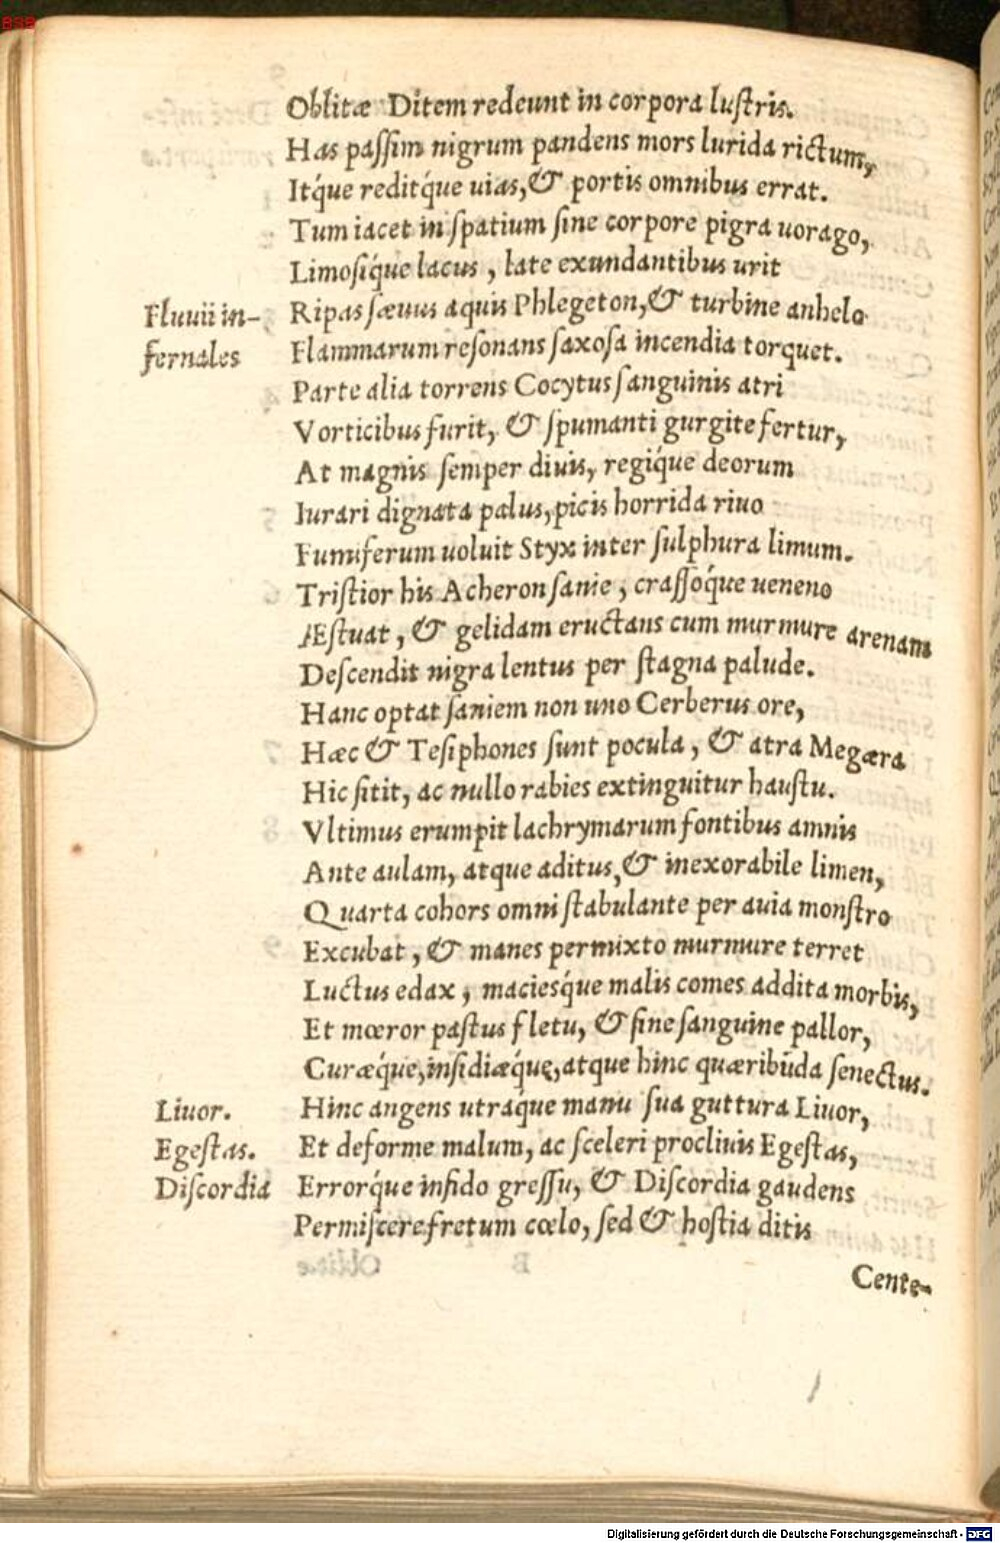 Oblitæ Ditem redeunt in corpora luſtris.
Has paſſim nigrum pandens mors lurida rictum,
Itq́ue reditq́ue uias, & portis omnibus errat.
Tum iacet in ſpatium ſine corpore pigra uorago,
Limoſiq́ue lacus, late exundantibus urit
Fluuii in-
fernales
Ripas ſæuus aquis Phlegeton, & turbine anhelo
Flammarum reſonans ſaxoſa incendia torquet.
Parte alia torrens Cocytus ſanguinis atri
Vorticibus furit, & ſpumanti gurgite fertur,
At magnis ſemper diuis, regiq́ue deorum
Iurari dignata palus, picis horrida riuo
Fumiferum uoluit Styx inter ſulphura limum.
Triſtior his Acheron ſanie, craſſoq́ue ueneno
Æſtuat, & gelidam eructans cum murmure arenam
Deſcendit nigra lentus per ſtagna palude.
Hanc optat ſaniem non uno Cerberus ore,
Hæc & Teſiphones ſunt pocula, & atra Megæra
Hic ſitit, ac nullo rabies extinguitur hauſtu.
Vltimus erumpit lachrymarum fontibus amnis
Ante aulam, atque aditus, & inexorabile limen,
Quarta cohors omni ſtabulante per auia monſtro
Excubat, & manes permixto murmure terret
Luctus edax, macieſq́ue malis comes addita morbis,
Et mœror paſtus fletu, & ſine ſanguine pallor,
Curæq́ue, inſidiæq́ue, atque hinc quæribūda ſenectus.
Liuor.
Egeſtas.
Diſcordia
Hinc angens utraq́ue manu ſua guttura Liuor,
Et deforme malum, ac ſceleri procliuis Egeſtas,
Errorq́ue infido greſſu, & Diſcordia gaudens
Permiſcere fretum cœlo, ſed & hoſtia ditis
Cente-
Digitalisierung gefördert durch die Deutsche Forschungsgemeinschaft - DFG